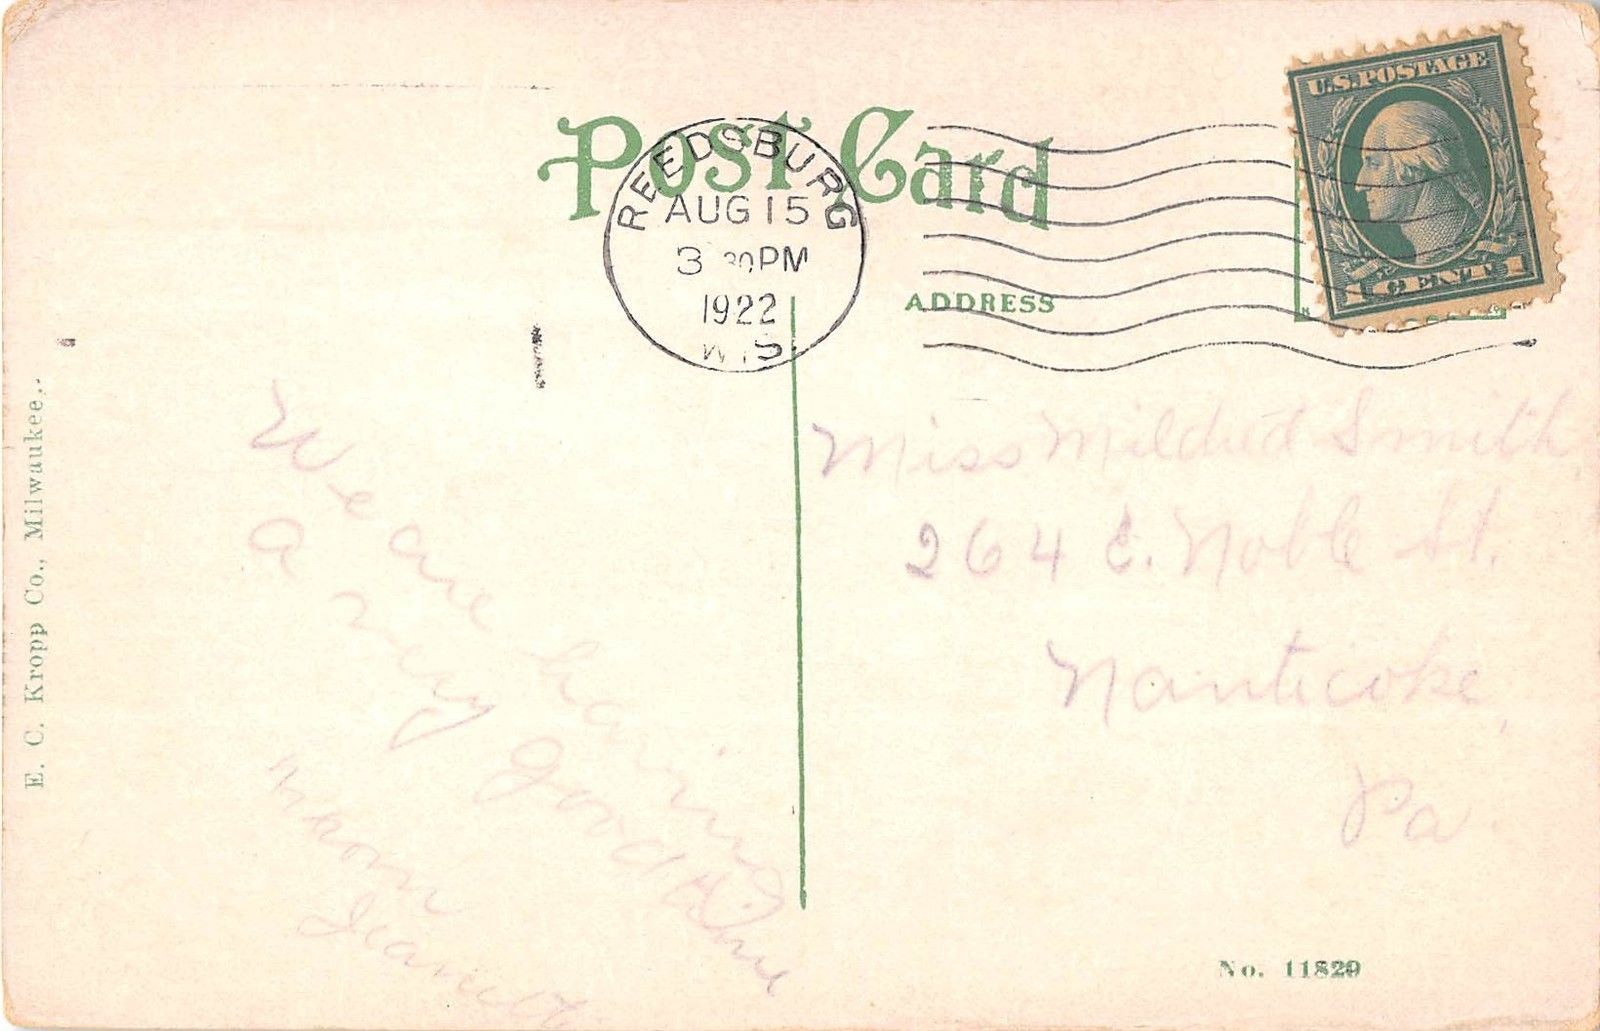 Post Card
REEDSBURG
AUG 15
3 30 PM
1922
WIS.
U.S. POSTAGE
1 CENT 1
ADDRESS
E. C. Kropp Co., Milwaukee.
We are having
a very good time
from
Miss Mildred Smith,
264 E. Noble St.
Nanticoke,
Pa.
No. 11829